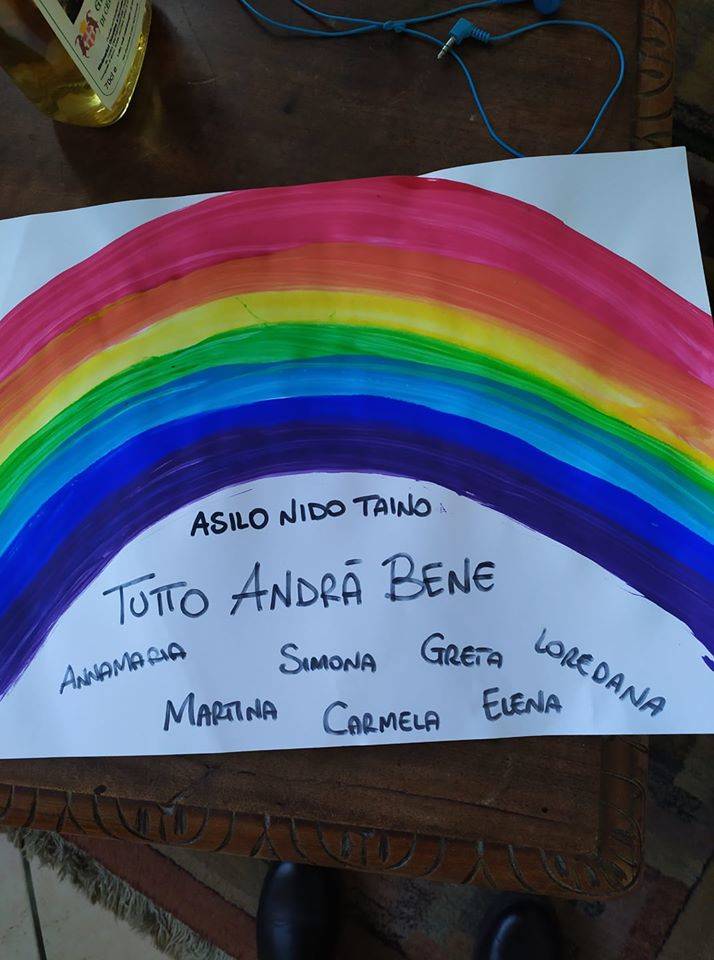 70cl e
ASILO NIDO TAINO
TUTTO ANDRÀ BENE
ANNAMARIA SIMONA GRETA LOREDANA
MARTINA CARMELA ELENA